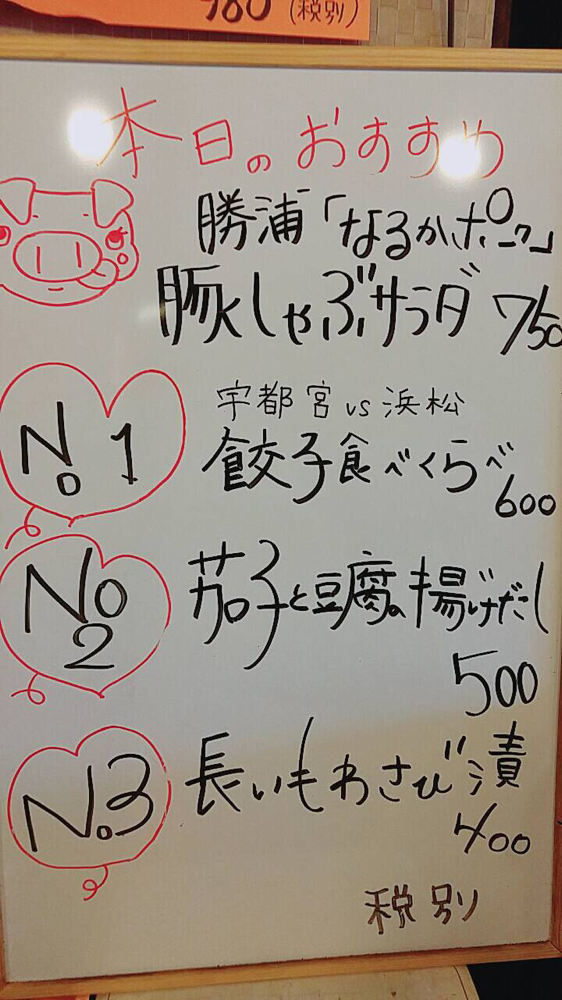 980 (税別)
本日のおすすめ
勝浦「なるかポーク」
豚しゃぶサラダ 750
No 1
宇都宮 vs 浜松
餃子食べくらべ
600
No 2
茄子と豆腐の揚げだし
500
No.3
長いもわさび漬
400
税別